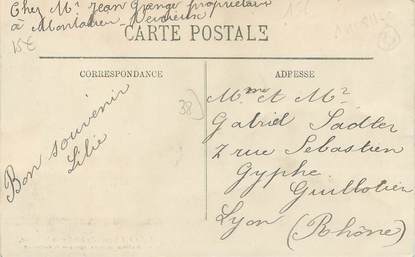 Chez Mr Jean Grange propriétaire
à Montalieu Vercieu
15€
CARTE POSTALE
CORRESPONDANCE
Bon souvenir
Lilie
38)
ADRESSE
Mme et Mr
Gabriel Sadler
7 rue Sebastien
Gyphe
Guillotière
Lyon
(Rhône)